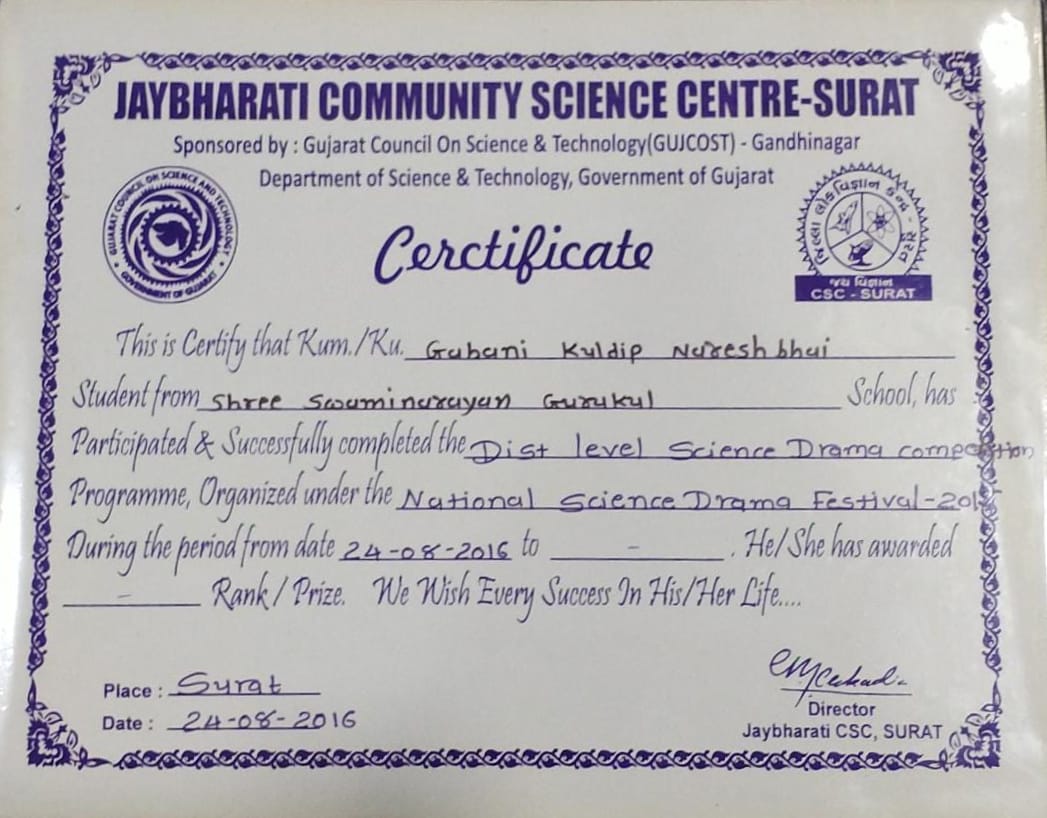 JAYBHARATI COMMUNITY SCIENCE CENTRE-SURAT
Sponsored by : Gujarat Council On Science & Technology(GUJCOST) - Gandhinagar
Department of Science & Technology, Government of Gujarat
GUJARAT COUNCIL ON SCIENCE AND TECHNOLOGY
GOVERNMENT OF GUJARAT
લોકવિજ્ઞાન કેન્દ્ર - સુરત
જય વિજ્ઞાન
CSC - SURAT
Cerctificate
This is Certify that Kum./Ku. Gabani Kuldip Nareshbhai
Student from Shree Swaminarayan Gurukul School, has
Participated & Successfully completed the Dist level Science Drama competition
Programme, Organized under the National Science Drama Festival-
During the period from date 24-08-2016 to - . He/She has awarded
- Rank / Prize. We Wish Every Success In His/Her Life....
Place : Surat
Date : 24-08-2016
Director
Jaybharati CSC, SURAT